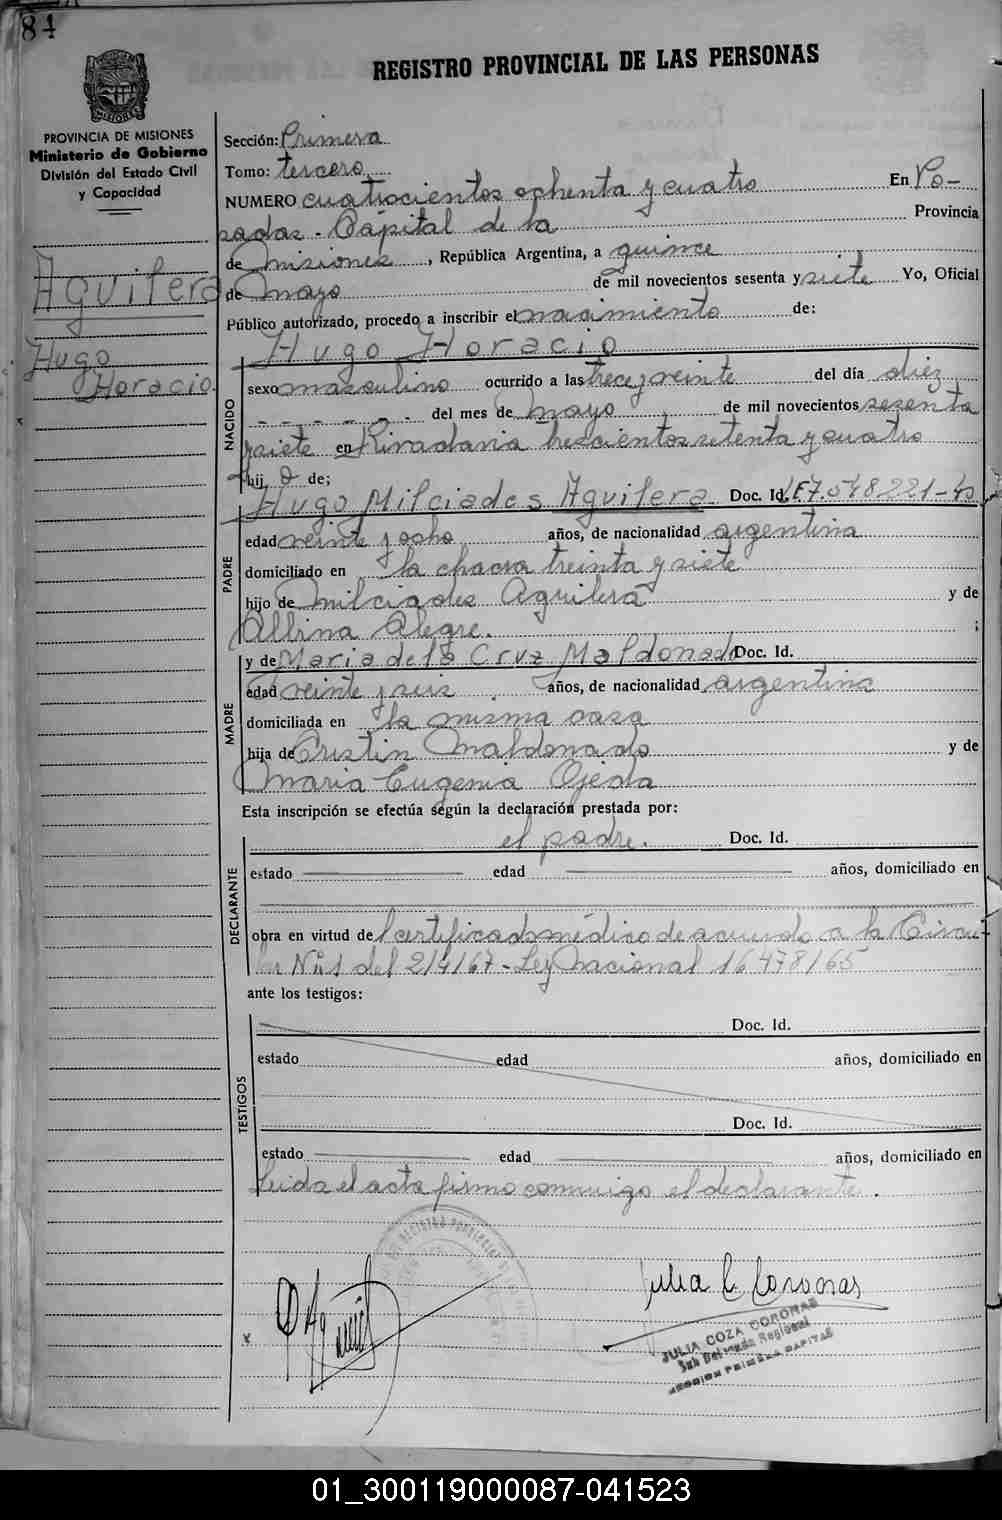 84
REGISTRO PROVINCIAL DE LAS PERSONAS
PROVINCIA DE MISIONES
Ministerio de Gobierno
División del Estado Civil
y Capacidad
Aguilera
Hugo
Horacio.
Sección: Primera
Tomo: tercero
NUMERO cuatrocientos ochenta y cuatro En Po-
sadas - Capital de la Provincia
de Misiones, República Argentina, a quince
de mayo de mil novecientos sesenta y siete Yo, Oficial
Público autorizado, procedo a inscribir el nacimiento de:
Hugo Horacio
NACIDO
sexo masculino ocurrido a las trece y veinte del día diez
- - - - - - del mes de mayo de mil novecientos sesenta
y siete en Rivadavia trescientos setenta y cuatro
hijo de;
PADRE
Hugo Milciades Aguilera Doc. Id. LE 7.548.221-
edad veinte y ocho años, de nacionalidad argentina
domiciliado en la chacra treinta y siete
hijo de Milciades Aguilera y de
Albina Alegre. ;
MADRE
y de Maria de la Cruz Maldonado Doc. Id.
edad veinte y seis años, de nacionalidad argentina
domiciliada en la misma casa
hija de Cristin Maldonado y de
Maria Eugenia Ojeda
Esta inscripción se efectúa según la declaración prestada por:
DECLARANTE
el padre. Doc. Id.
estado edad años, domiciliado en
obra en virtud del certificado médico de acuerdo a la Circu-
lar Nº 1 del 2/4/67 - Ley Nacional 16478/65
ante los testigos:
TESTIGOS
Doc. Id.
estado edad años, domiciliado en
Doc. Id.
estado edad años, domiciliado en
Leida el acta firmo conmigo el declarante.
Julia C. Coronas
JULIA COZA CORONAS
Sub Delegada Regional
SECCION PRIMERA CAPITAL
01_300119000087-041523